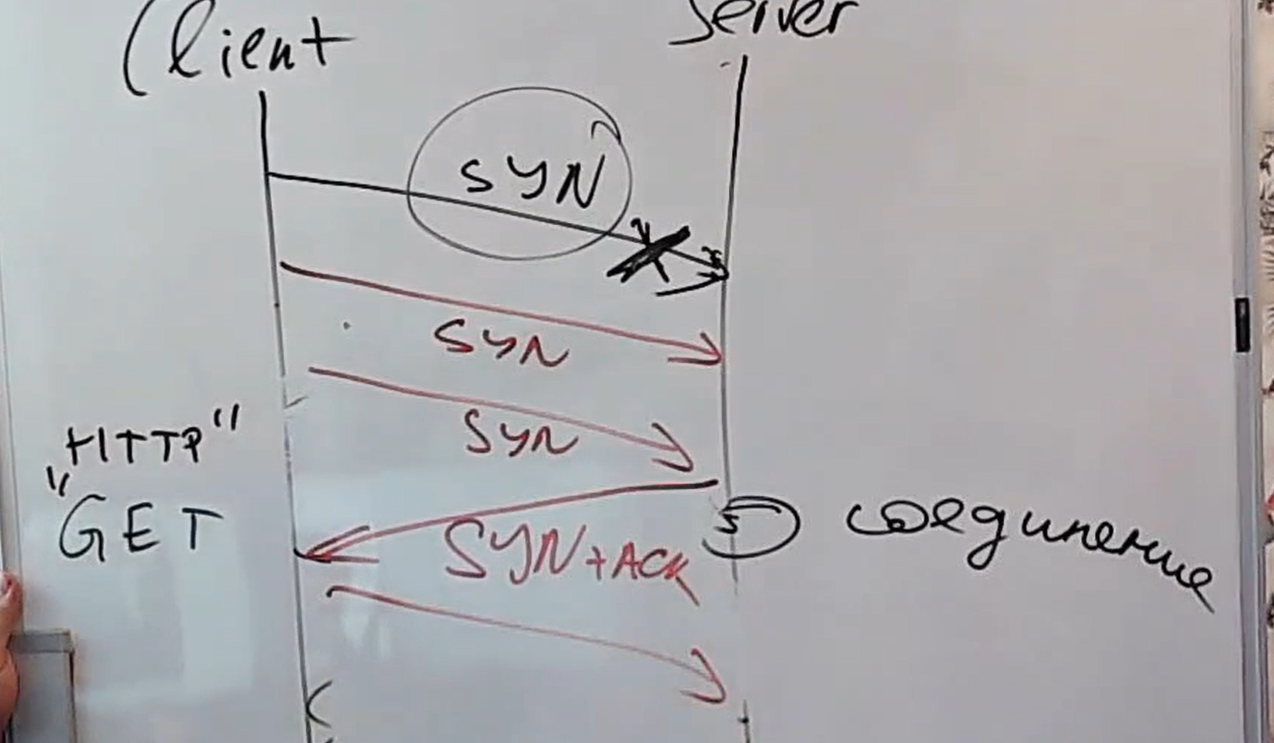 Client
Server
SYN
SYN
SYN
"HTTP"
"GET
SYN+ACK
соединение